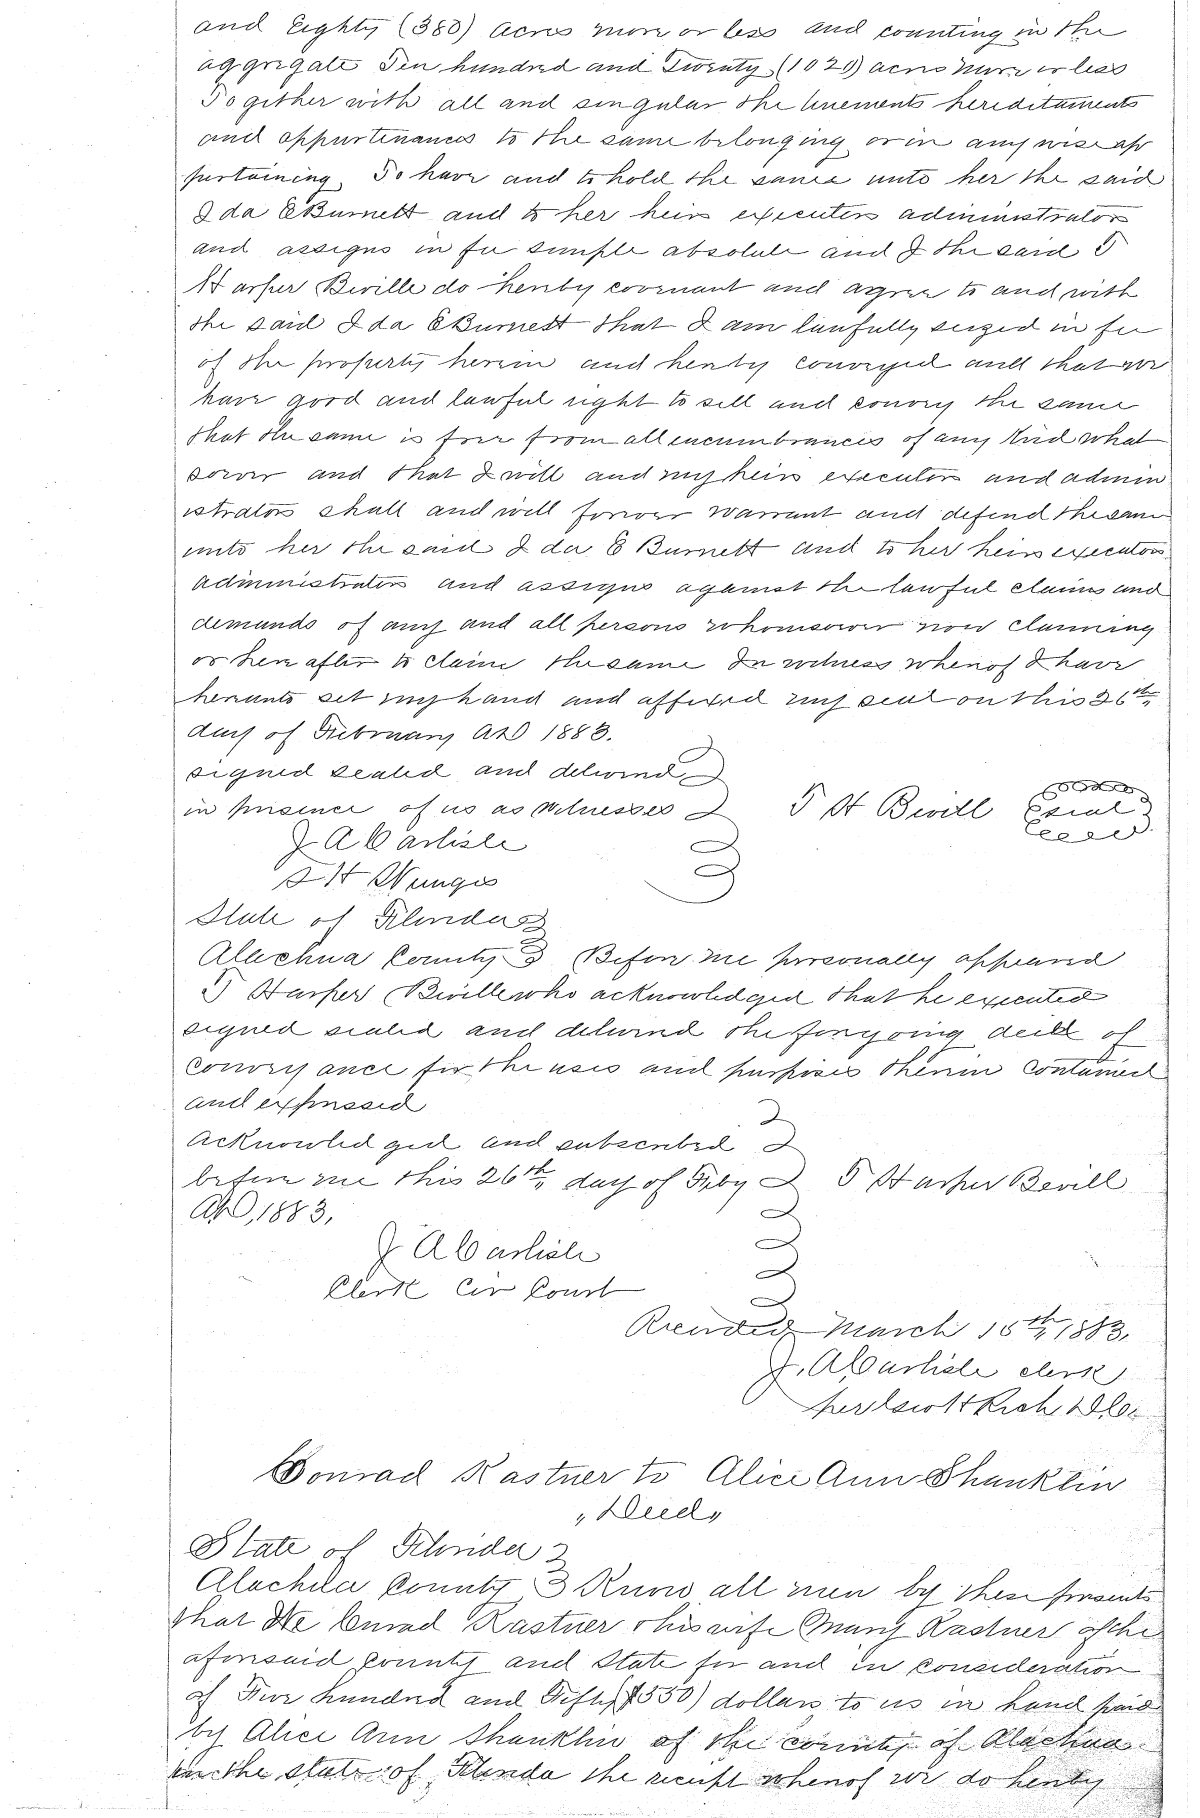 and Eighty (380) acres more or less and counting in the
aggregate Ten hundred and Twenty (1020) acres more or less
Together with all and singular the tenements hereditaments
and appurtenances to the same belonging or in any wise ap
pertaining To have and to hold the same unto her the said
Ida E Burnett and to her heirs executors administrators
and assigns in fee simple absolute and I the said T
Harper Beville do hereby covenant and agree to and with
the said Ida E Burnett that I am lawfully seized in fee
of the property herein and hereby conveyed and that we
have good and lawful right to sell and convey the same
that the same is free from all encumbrances of any kind what
soever and that I will and my heirs executors and admin
istrators shall and will forever warrant and defend the same
unto her the said Ida E Burnett and to her heirs executors
administrators and assigns against the lawful claims and
demands of any and all persons whomsoever now claiming
or here after to claim the same In witness whereof I have
hereunto set my hand and affixed my seal on this 26th
day of February AD 1883.
signed sealed and delivered
in presence of us as witnesses T H Bevill seal
J A Carlisle
S H
State of Florida
Alachua County Before me personally appeared
T Harper Beville who acknowledged that he executed
signed sealed and delivered the foregoing deed of
conveyance for the uses and purposes therein contained
and expressed
Acknowledged and subscribed
before me this 26th day of Feby T Harper Bevill
AD, 1883,
J A Carlisle
Clerk Cir Court
Recorded March 15th 1883,
J. A Carlisle clerk
per
Conrad Kastner to Alice Ann Shanklin
"Deed"
State of Florida
Alachua County Know all men by these presents
that We Conrad Kastner & his wife Mary Kastner of the
aforesaid county and State for and in consideration
of Five hundred and Fifty ($550) dollars to us in hand paid
by Alice Ann Shanklin of the county of Alachua
in the state of Florida the receipt whereof we do hereby